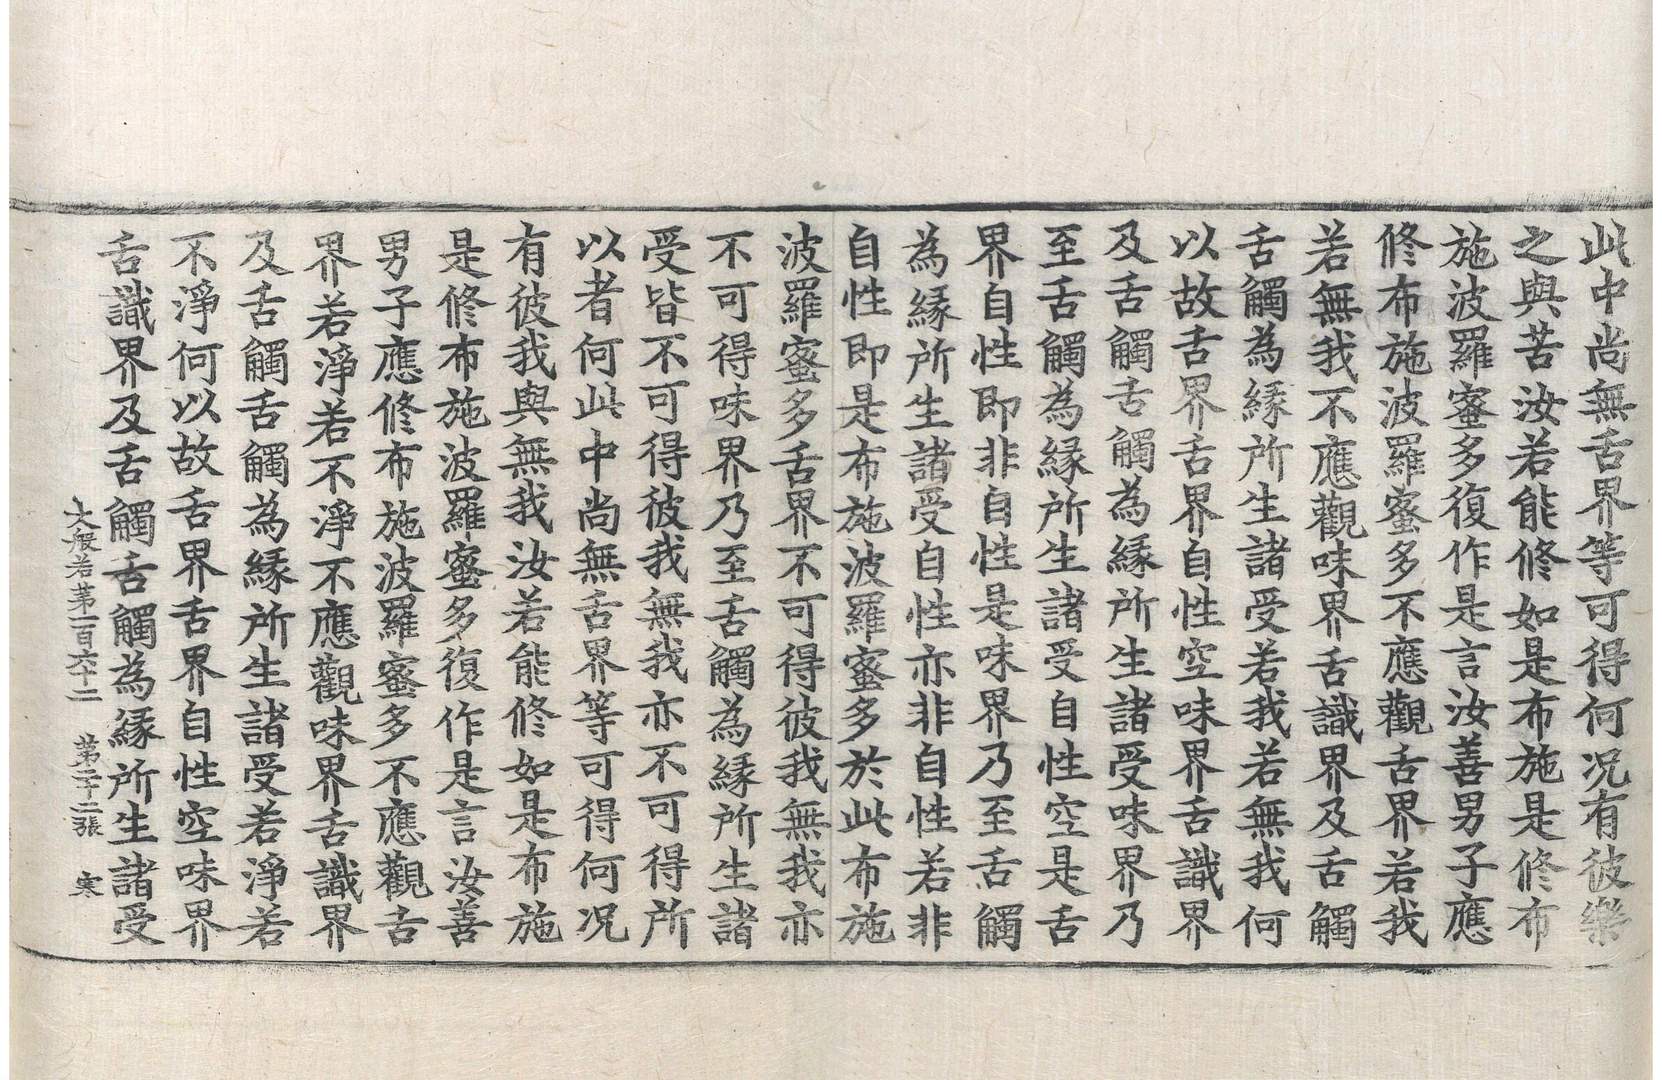 此中尚無舌界等可得何况有彼樂
之與苦汝若能修如是布施是修布
施波羅蜜多復作是言汝善男子應
修布施波羅蜜多不應觀舌界若我
若無我不應觀味界舌識界及舌觸
舌觸為緣所生諸受若我若無我何
以故舌界舌界自性空味界舌識界
及舌觸舌觸為緣所生諸受味界乃
至舌觸為緣所生諸受自性空是舌
界自性即非自性是味界乃至舌觸
為緣所生諸受自性亦非自性若非
自性即是布施波羅蜜多於此布施
波羅蜜多舌界不可得彼我無我亦
不可得味界乃至舌觸為緣所生諸
受皆不可得彼我無我亦不可得所
以者何此中尚無舌界等可得何况
有彼我與無我汝若能修如是布施
是修布施波羅蜜多復作是言汝善
男子應修布施波羅蜜多不應觀舌
界若淨若不淨不應觀味界舌識界
及舌觸舌觸為緣所生諸受若淨若
不淨何以故舌界舌界自性空味界
舌識界及舌觸舌觸為緣所生諸受
大般若第一百六十二 第二十二張 寒